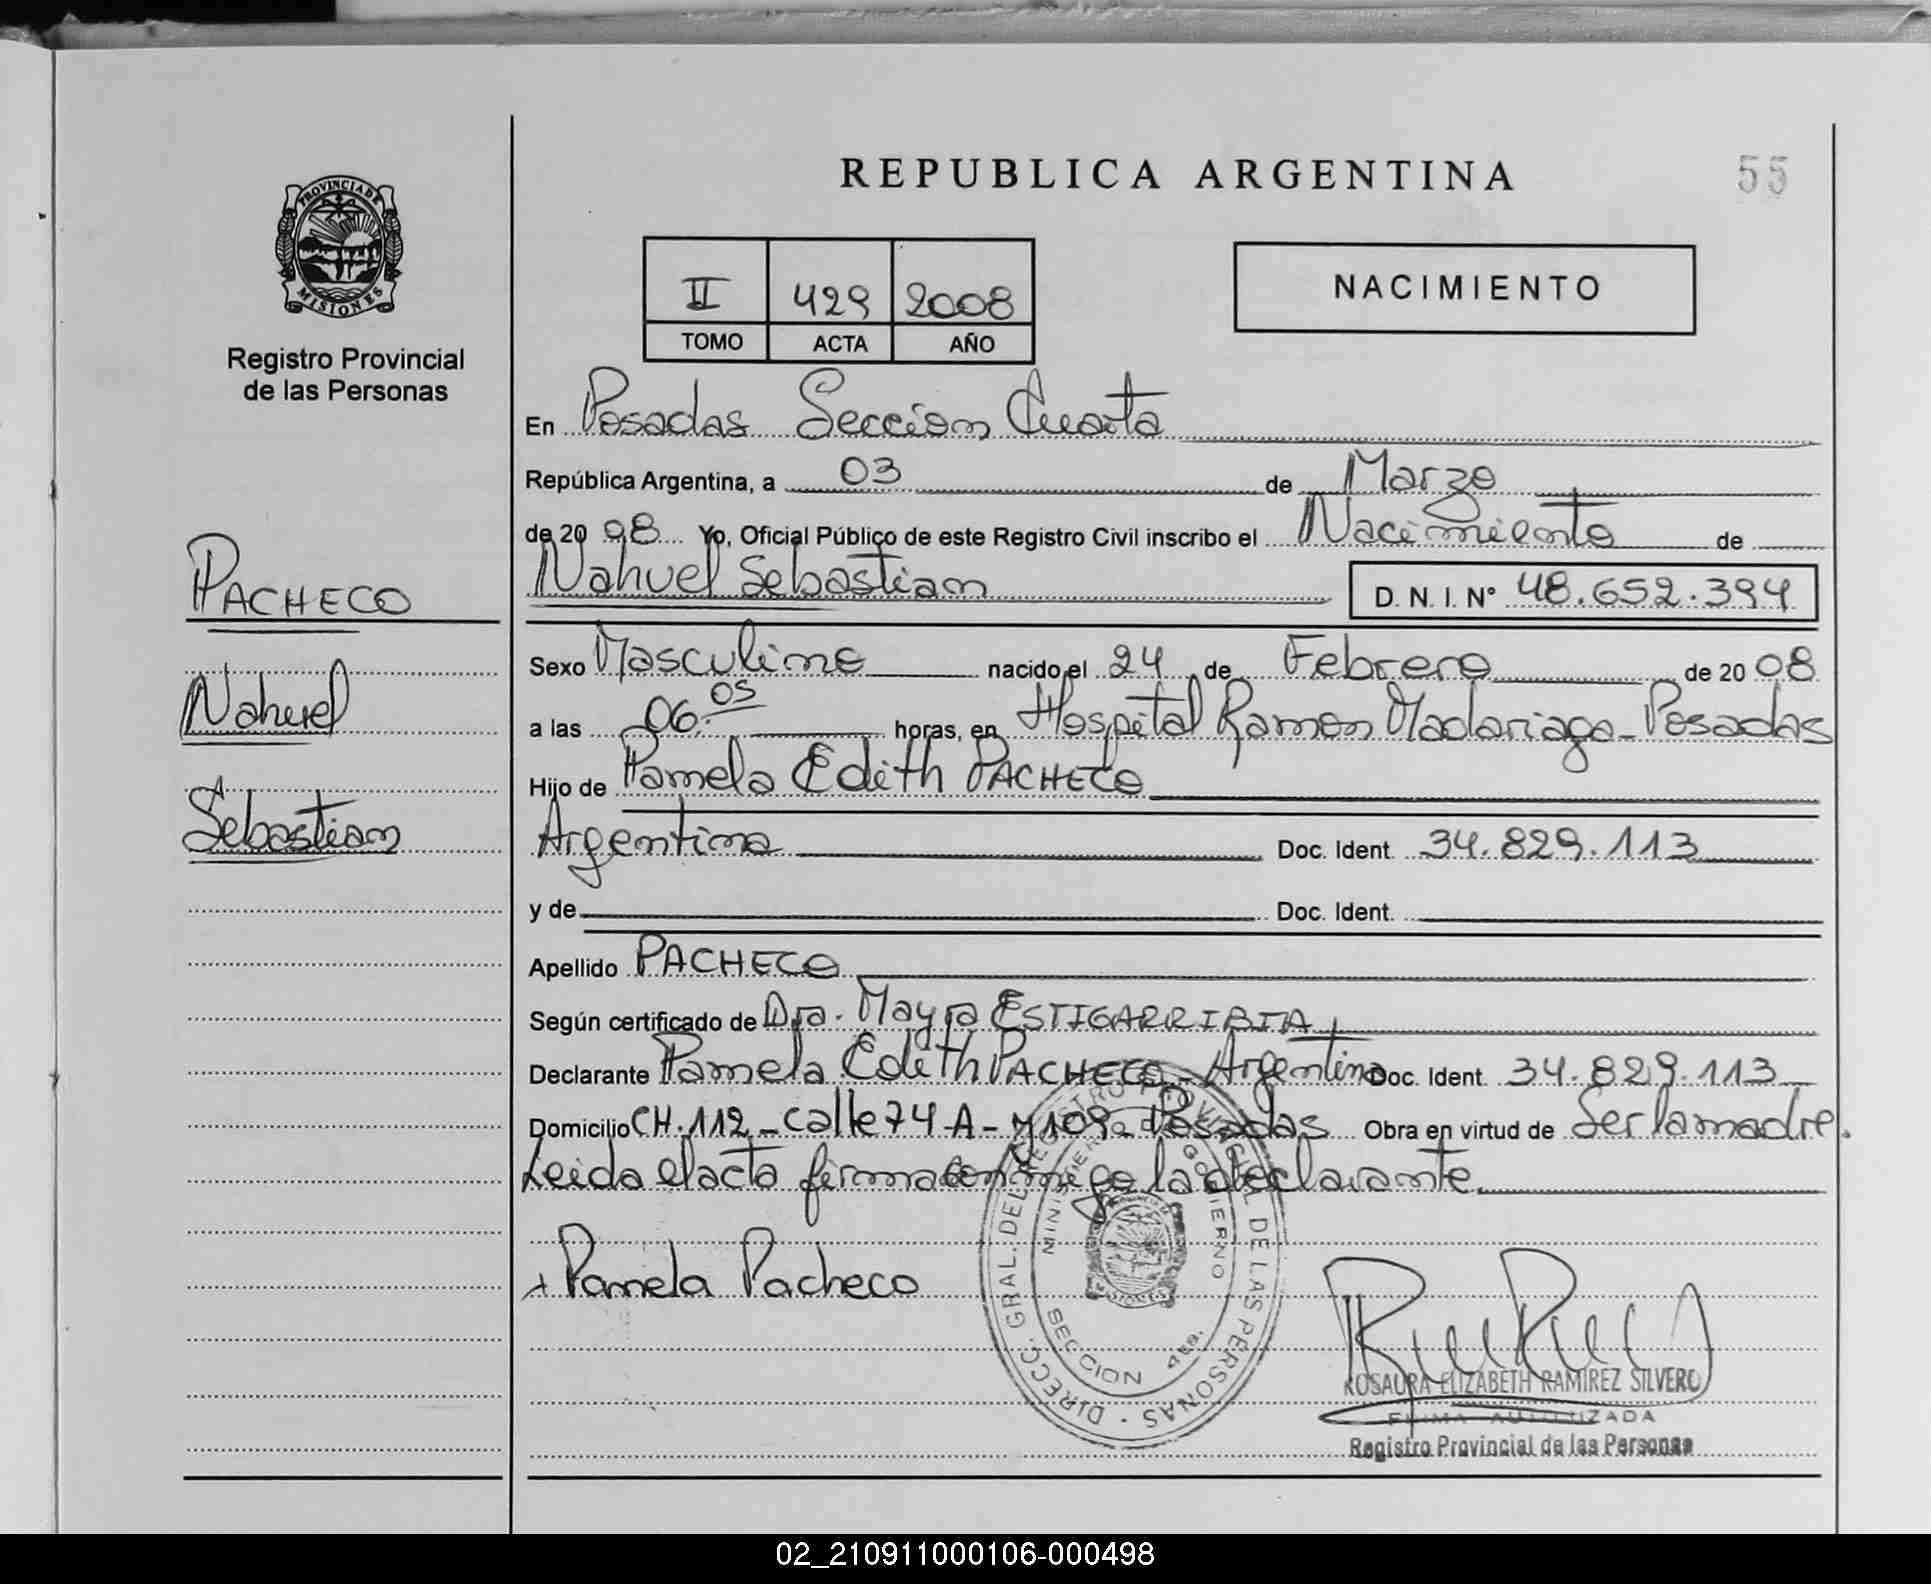 REPUBLICA ARGENTINA
55
PROVINCIA DE
MISIONES
Registro Provincial
de las Personas
II 429 2008
TOMO ACTA AÑO
NACIMIENTO
PACHECO
Nahuel
Sebastian
En Posadas Sección Cuarta
República Argentina, a 03 de Marzo
de 20 08 Yo, Oficial Público de este Registro Civil inscribo el Nacimiento de
Nahuel Sebastian D. N. I. N° 48.652.394
Sexo Masculino nacido el 24 de Febrero de 20 08
a las 06.05 horas, en Hospital Ramon Madariaga - Posadas
Hijo de Pamela Edith PACHECO
Argentina Doc. Ident. 34.829.113
y de Doc. Ident.
Apellido PACHECO
Según certificado de Dra. Mayra ESTIGARRIBIA
Declarante Pamela Edith PACHECO - Argentina Doc. Ident. 34.829.113
Domicilio CH. 112 - calle 74 A - y 109 - Posadas Obra en virtud de Ser la madre.
Leida el acta firma conmigo la declarante.
Pamela Pacheco
DIRECC. GRAL. DEL REGISTRO PROVINCIAL DE LAS PERSONAS
MINISTERIO DE GOBIERNO
MISIONES
SECCION 4ta.
ROSAURA ELIZABETH RAMIREZ SILVERO
FIRMA AUTORIZADA
Registro Provincial de las Personas
02_210911000106-000498